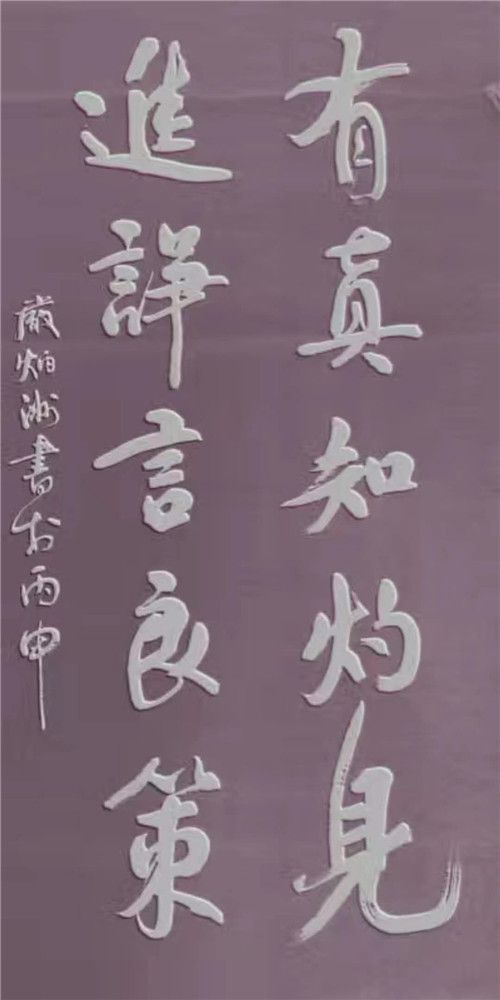 有真知灼見
進諍言良策
嚴洲書於丙申